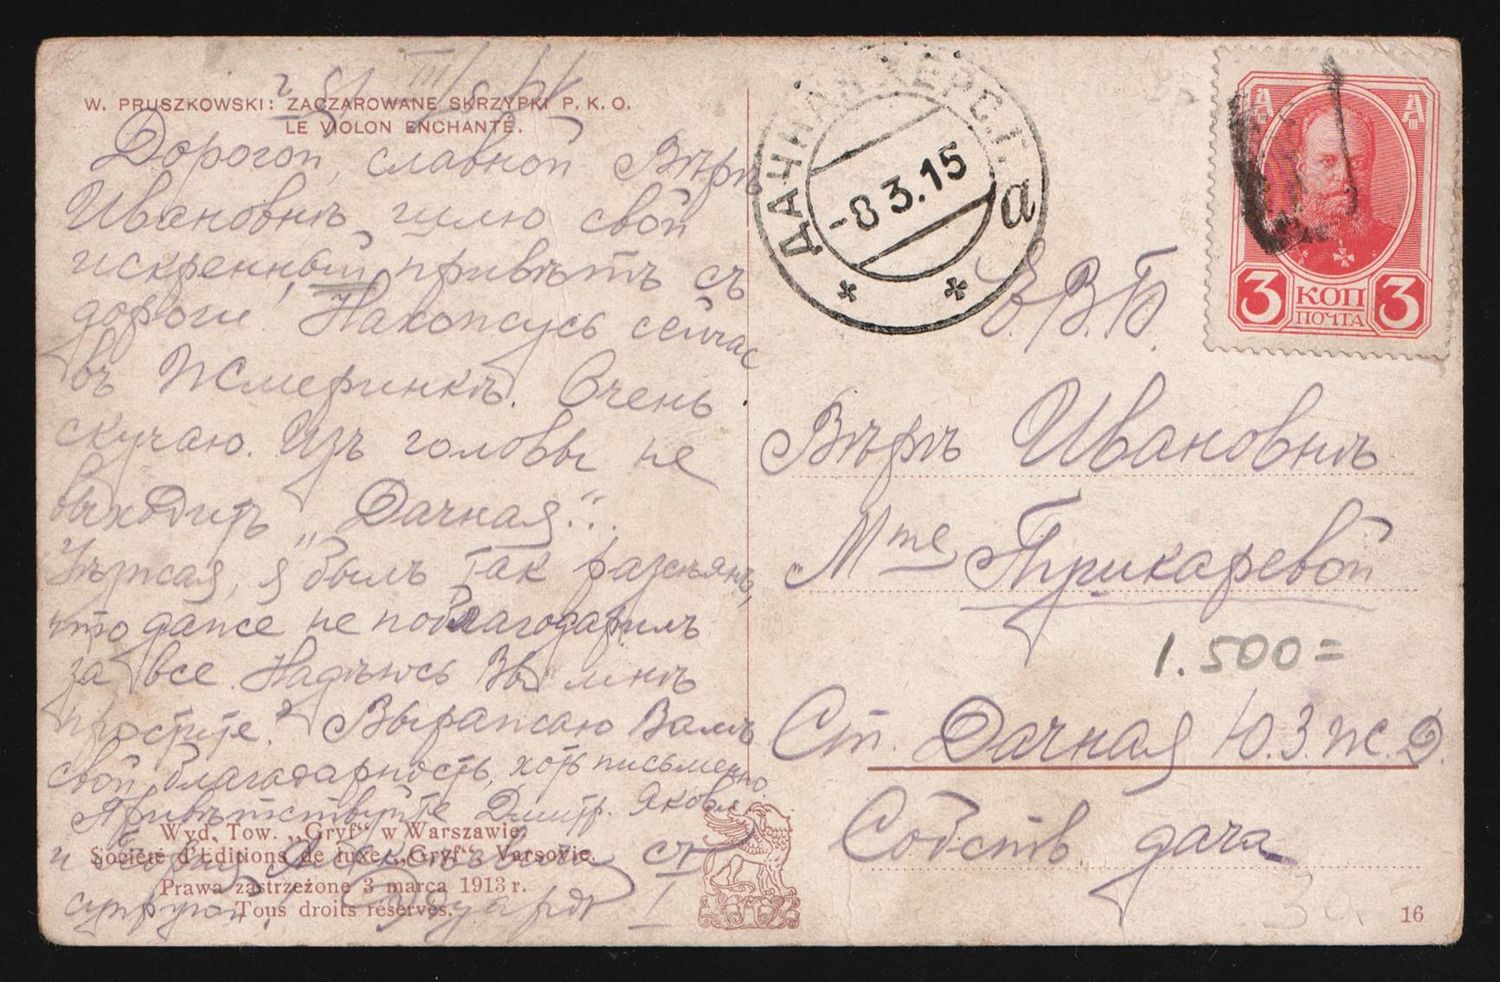 W. PRUSZKOWSKI: ZACZAROWANE SKRZYPKI P. K. O.
LE VIOLON ENCHANTÉ.
Дорогой, славной Вѣрѣ
Ивановнѣ шлю свой
искренный привѣтъ съ
дороги. Нахожусь сейчас
въ Жмеринкѣ. Очень
скучаю. Изъ головы не
выходитъ „Дачная"...
Уѣзжая, я былъ так разсѣянъ,
что даже не поблагодарилъ
за все. Надѣюсь Вы мнѣ
простите? Выражаю Вамъ
свою благодарность, хоть письменно.
Привѣтствуйте Дмитр. Яковл.
и съ
супругой. Эдуардъ
Wyd. Tow. „Gryf" w Warszawie.
Société d'Editions de luxe „Gryf", Varsovie.
Prawa zastrzeżone 3 marca 1913 r.
Tous droits réservés.
ДАЧНАЯ ХЕРС. Г.
-8 3.15
а
3 КОП 3
ПОЧТА
Е. В. Б.
Вѣрѣ Ивановнѣ
Mme Трикаревой
1.500=
Ст. Дачная Ю. З. Ж. Д.
Собств. дача
16